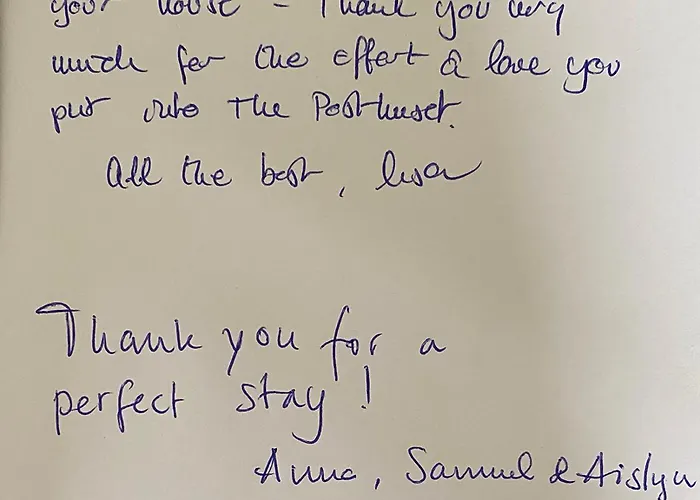 your house - Thank you very
much for the effort & love you
put into the Posthuset.
All the best, Iwa
Thank you for a
perfect stay!
Anna, Samuel & Aislyn